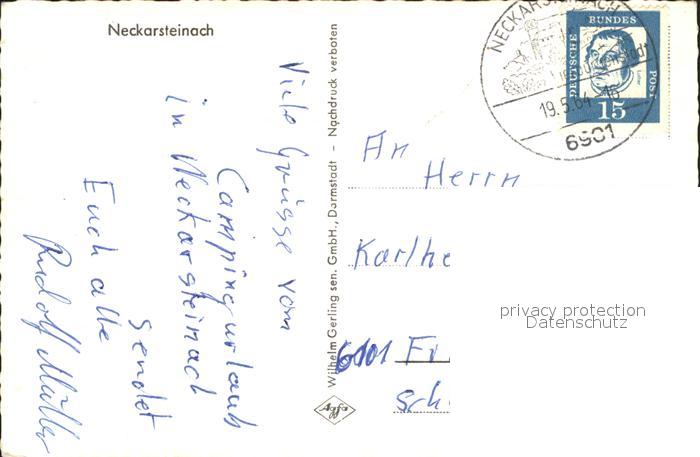 Neckarsteinach
Viele Grüsse vom
Campingurlaub
in Neckarsteinach
sendet
Euch alle
Rudolf Müller
Wilhelm Gerling sen. GmbH., Darmstadt - Nachdruck verboten
Agfa
NECKARSTEINACH
Vierburgenstadt
19.5.64-16
6901
DEUTSCHE
BUNDES
POST
Luther
15
An
Herrn
Karlhe
6101 Fr
Sch
privacy protection
Datenschutz